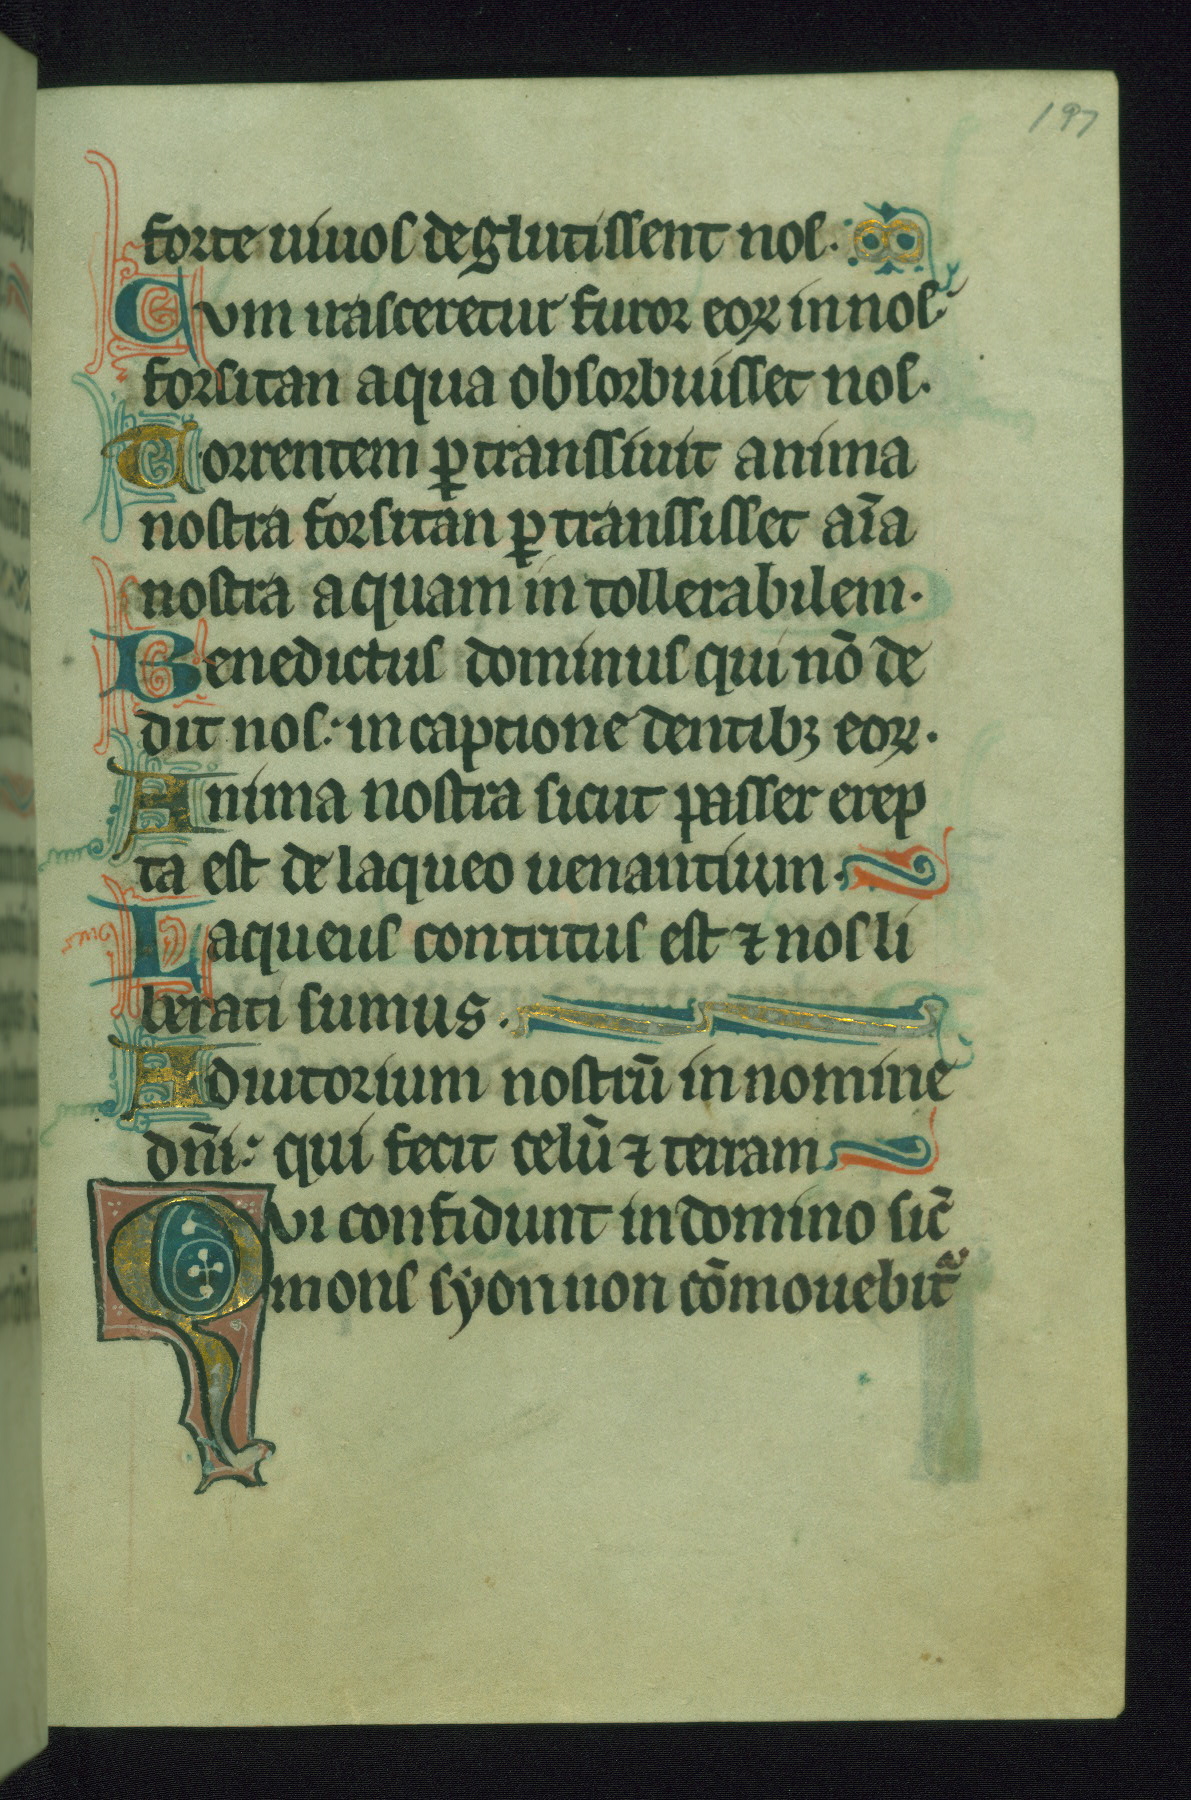 197
forte uiuos deglutissent nos.
Cum irasceretur furor eoꝝ in nos:
forsitan aqua obsorbuisset nos.
Torrentem ꝑtranssiuit anima
nostra forsitan ꝑtranssisset aīa
nostra aquam in tollerabilem.
Benedictus dominus qui nō de
dit nos: in captione dentibꝫ eoꝝ.
Anima nostra sicut passer erep
ta est de laqueo uenantium.
Laqueus contritus est ⁊ nos li
berati sumus.
Adiutorium nostrū in nomine
dn̄i: qui fecit celū ⁊ terram
Qui confidunt in domino sic̄
mons syon non cōmouebit᷑